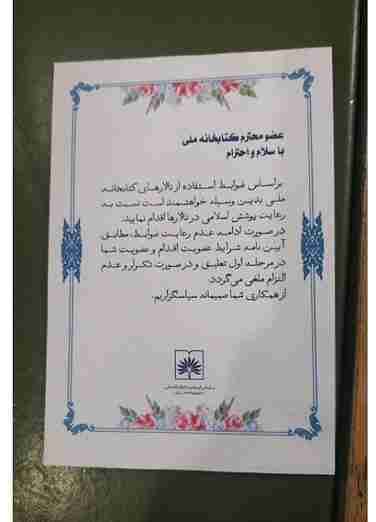 عضو محترم کتابخانه ملی
با سلام و احترام
براساس ضوابط استفاده از تالارهای کتابخانه
ملی بدین وسیله خواهشمند است نسبت به
رعایت پوشش اسلامی در تالارها اقدام نمایید.
در صورت ادامه عدم رعایت ضوابط، مطابق
آیین نامه شرایط عضویت اقدام و عضویت شما
در مرحله اول تعلیق و در صورت تکرار و عدم
التزام ملغی می‌گردد.
از همکاری شما صمیمانه سپاسگزاریم.